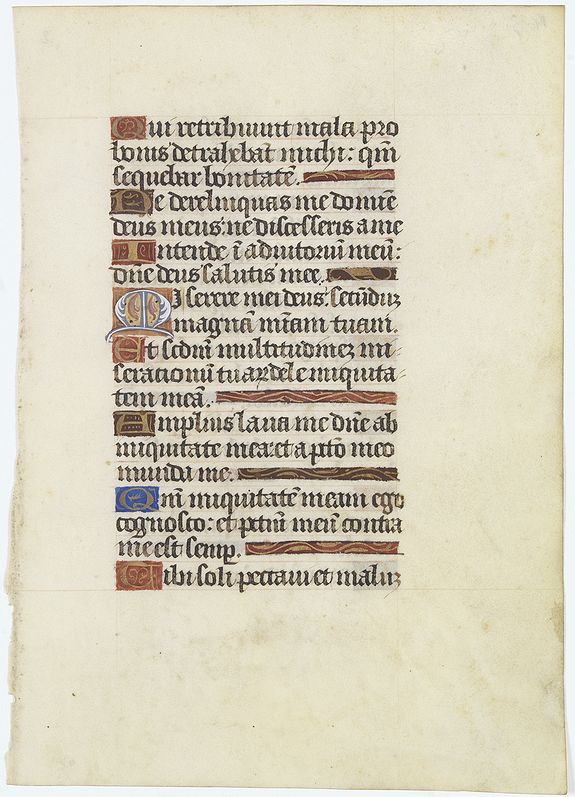 Qui retribuunt mala pro
bonis detrahebāt michi: qm̄
sequebar bonitatē.
Ne derelinquas me domine
deus meus: ne discesseris a me
Intende ī adiutoriū meū:
dn̄e deus salutis mee.
Miserere mei deus: secūduȝ
magnā mīam tuam.
Et scdm̄ multitudinez mi-
seracionū tuaꝝ dele iniquita-
tem meā.
Amplius laua me dn̄e ab
iniquitate mea: et a pc̄to meo
munda me.
Qm̄ iniquitatē meam ego
cognosco: et pctm̄ meū contra
me est semp̲.
Tibi soli peccaui et maluȝ